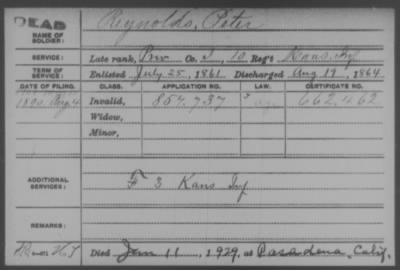 DEAD
NAME OF SOLDIER: Reynolds, Peter
SERVICE: Late rank, Priv Co. I, 10 Reg't Kans. Inf
TERM OF SERVICE: Enlisted July 25, 1861 Discharged Aug 19, 1864
DATE OF FILING. CLASS. APPLICATION NO. LAW. CERTIFICATE NO.
1890 Aug 4 Invalid, 857.737 662.462
Widow,
Minor,
ADDITIONAL SERVICES: F 3 Kans Inf
REMARKS:
Died Jan 11, 1929, at Pasadena, Calif.